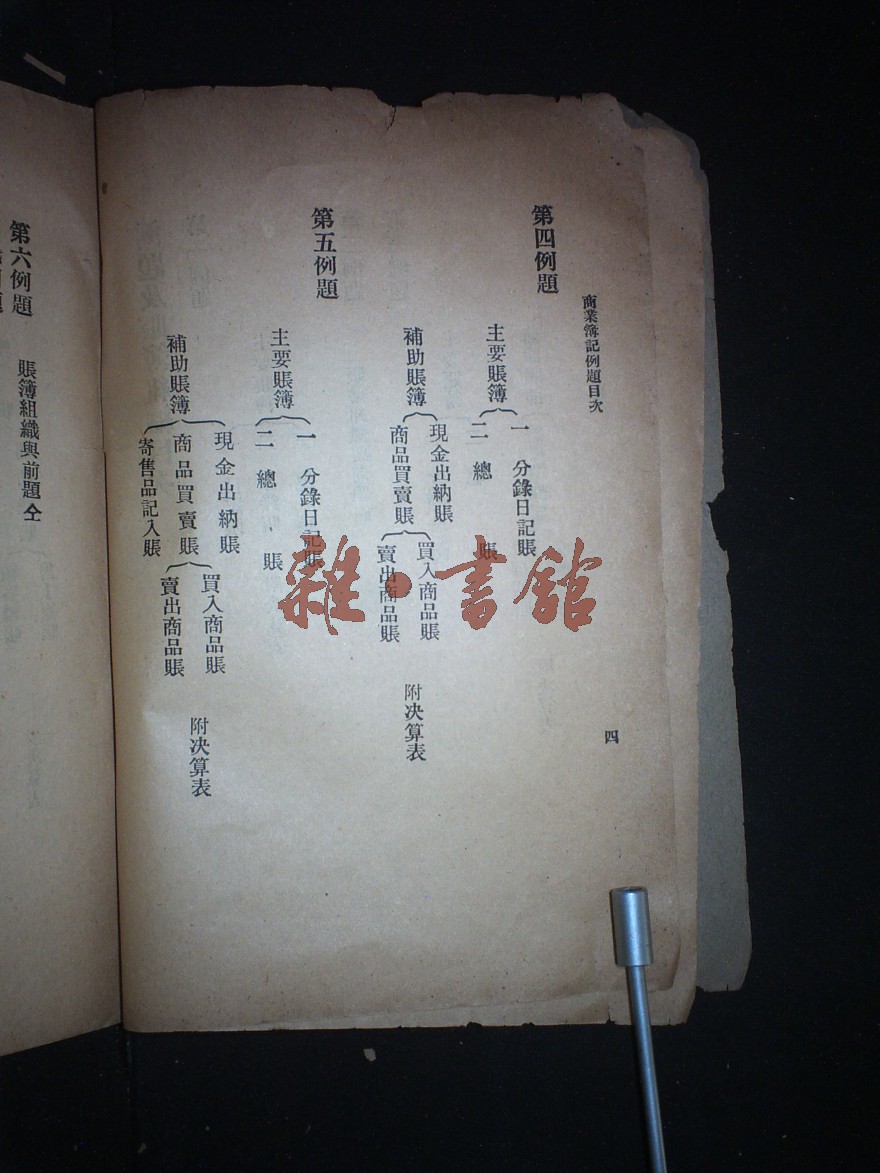 商業簿記例題目次
四
第四例題
主要賬簿
一 分錄日記賬
二 總 賬
補助賬簿
現金出納賬
商品買賣賬
買入商品賬
賣出商品賬
附決算表
第五例題
主要賬簿
一 分錄日記賬
二 總 賬
補助賬簿
現金出納賬
商品買賣賬
寄售品記入賬
買入商品賬
賣出商品賬
附決算表
第六例題
賬簿組織與前題仝
雜·書館